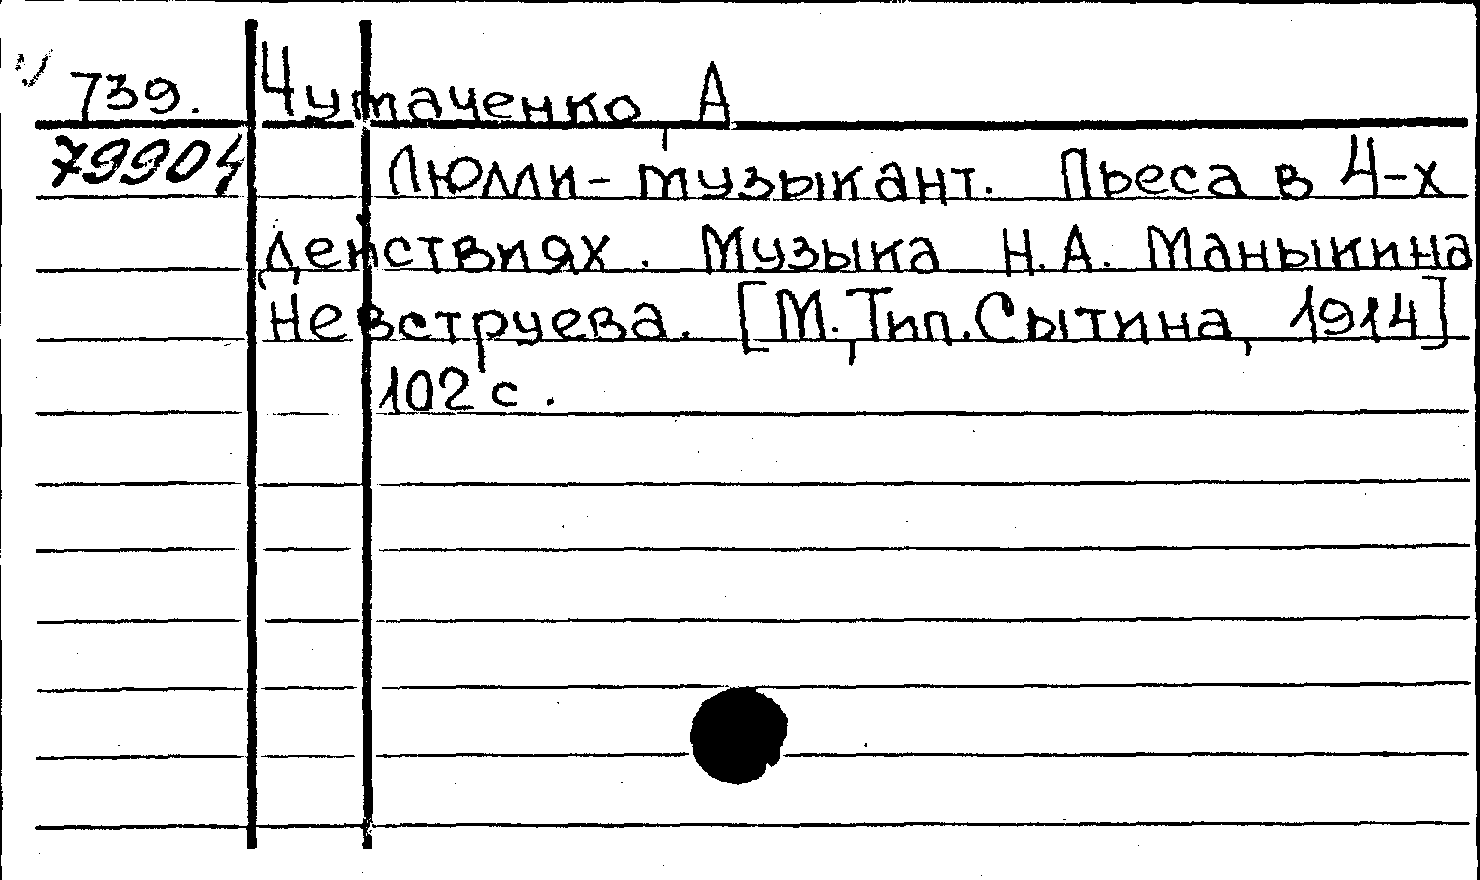 739. Чутаченко, А
79904 Люлли-музыкант. Пьеса в 4-х
действиях. Музыка Н.А. Маныкина
Невструева. [М., Тип. Сытина, 1914]
102 с.